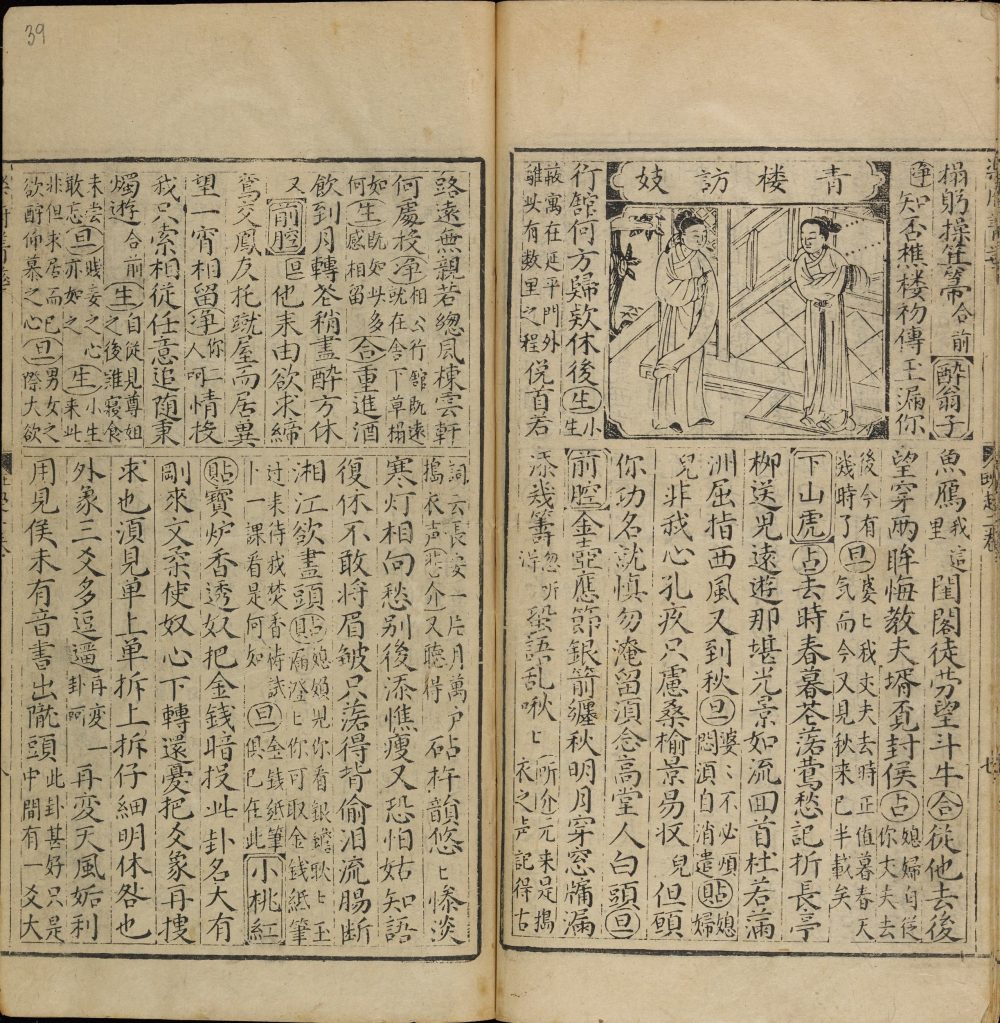 搦躬操箕箒合前醉翁子
淨知否樵楼初傳玉漏你
青楼訪妓
行舘何方歸欤休後生小生
敝寓在延平門外雖此有数里之程悅首若
魚鴈我這里閨閣徒劳望斗牛合從他去後
望穿兩眸悔教夫壻覓封侯占媳婦自從你丈夫去
後今有幾時了旦婆匕我丈夫去時正值暮春天气而今又見秋来已半載矣
下山虎占去時春暮苍落鶯愁記折長亭
柳送児遠遊那堪光景如流回首杜若滿
洲屈指西風又到秋旦婆〻不必煩悶須自消遣貼媳婦
兒非我心孔疚只慮桑榆景易収兒但頭
你功名就慎勿淹留須念高堂人白頭旦
前腔金亞應節銀箭纏秋明月穿窓牖漏
添幾籌忽听得蛩語乱啾匕听介元来是搗衣之声記得古
39
路遠無親若葱風棟雲軒
何處投淨相公行舘既遠就在舍下草榻
如何生既如此多感相留合重進酒
飲到月轉苍稍盡醉方休
又前腔旦他来由欲求締
鴛交鳳友托跳屋而居異
望一宵相留淨你二人呵情投
我只索相從任意追随秉
燭遊合前生自從見尊姐之後誰寢食
未尝敢忘旦賤妾之心亦如之生小生来此
非但求居而已欲酧仰慕之心旦男女之際大欲
詞云長安一片月萬戶搗衣声悲介又聽得砧杵韻悠匕慘淡
寒灯相向愁别後添憔瘦又恐怕姑知語
復休不敢將眉皱只落得背偷泪流腸断
湘江欲盡頭貼媳婦児你看銀蟾耿匕玉廟澄匕你可取金钱紙筆
过来待我焚香祷試卜一課看是何如旦金钱紙筆俱已在此小桃紅
貼寶炉香透奴把金錢暗投此卦名大有
剛來文柔使奴心下轉還憂把爻象再摟
求也須見单上单拆上拆仔細明休咎也
外象三爻多逗遛再变卦呵一再変天風姤利
用見侯未有音書出隴頭此卦甚好只是中間有一爻大